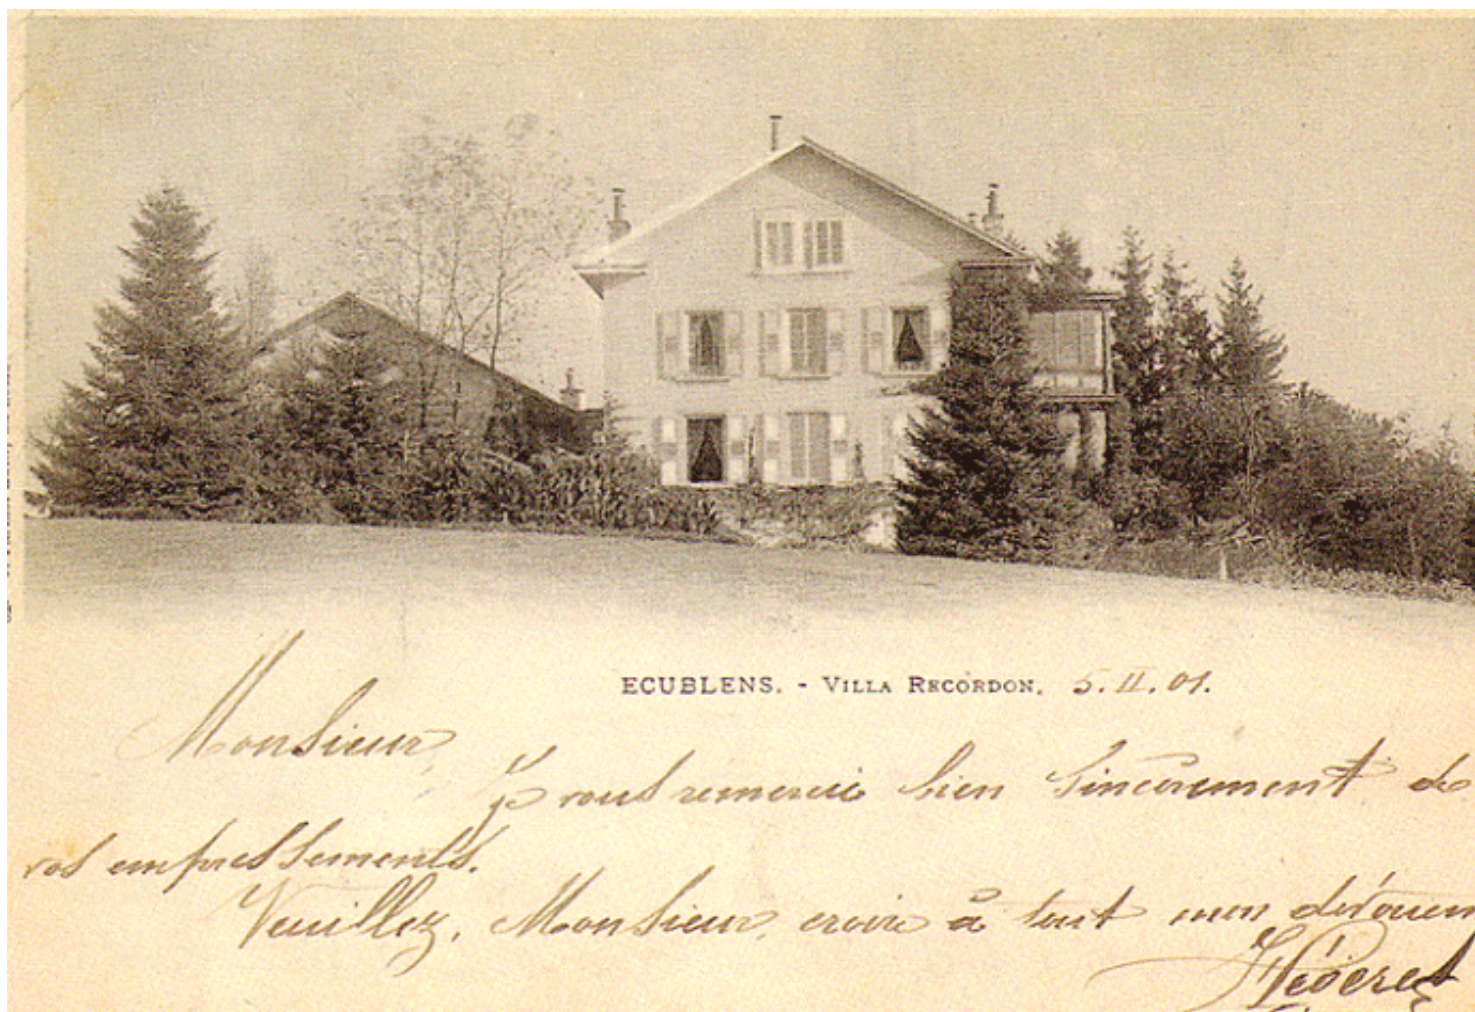 ECUBLENS. - VILLA RECORDON. 5. II. 01.
Monsieur,
Je vous remercie bien sincèrement de
vos empressements.
Veuillez, Monsieur, croire à tout mon dévouem